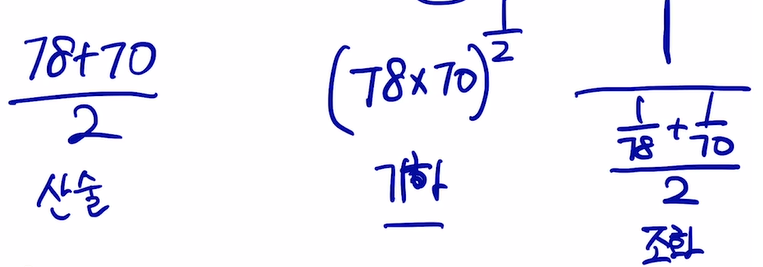 78+70
2
산술
(78×70)^1/2
기하
1
1/78 + 1/70
2
조화